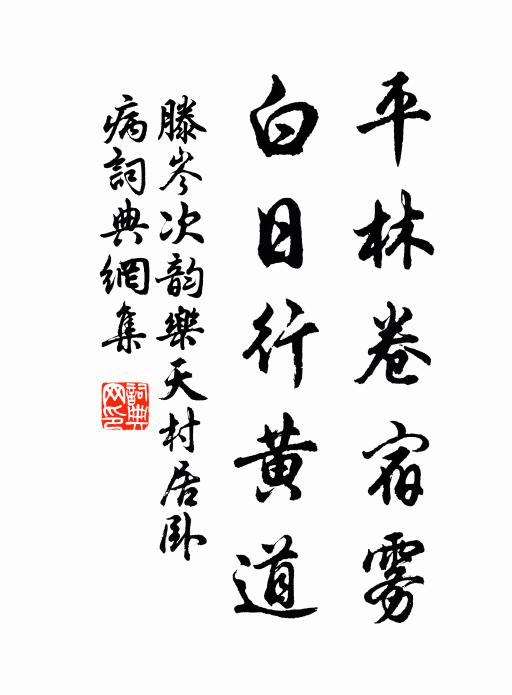 平林卷宿雾
白日行黄道
滕岑次韵樂天村居卧
病詞典網集
詞典网印